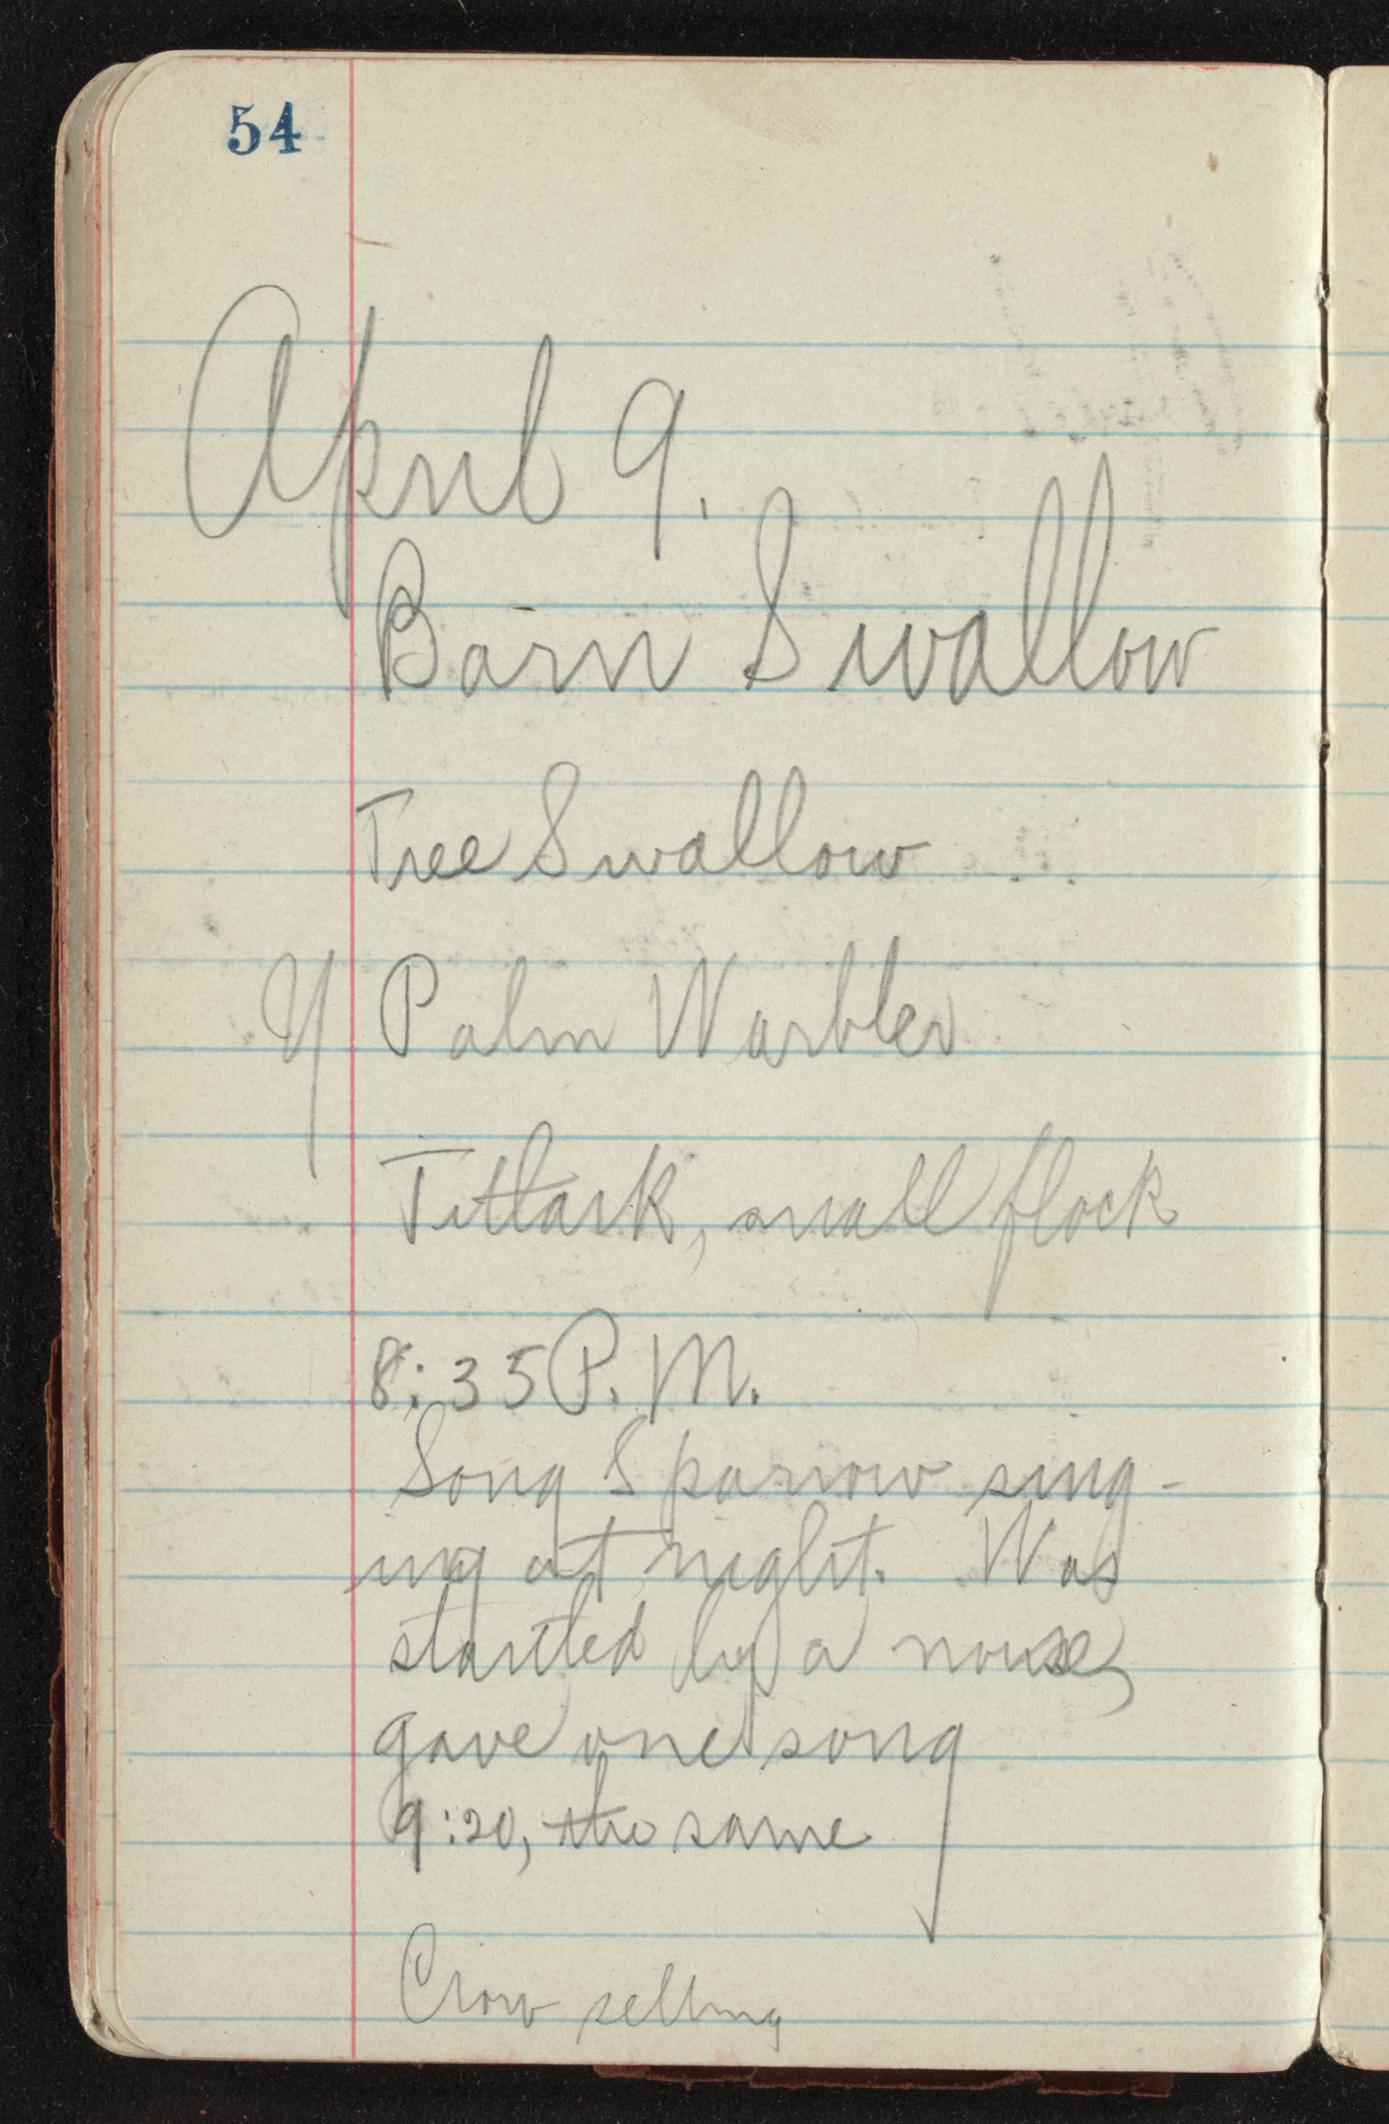 54
April 9.
Barn Swallow
Tree Swallow
Y Palm Warbler
Titlark, small flock
8:35 P.M.
Song Sparrow sing-
ing at night. Was
startled by a noise,
gave one song
9:20, the same
Crow